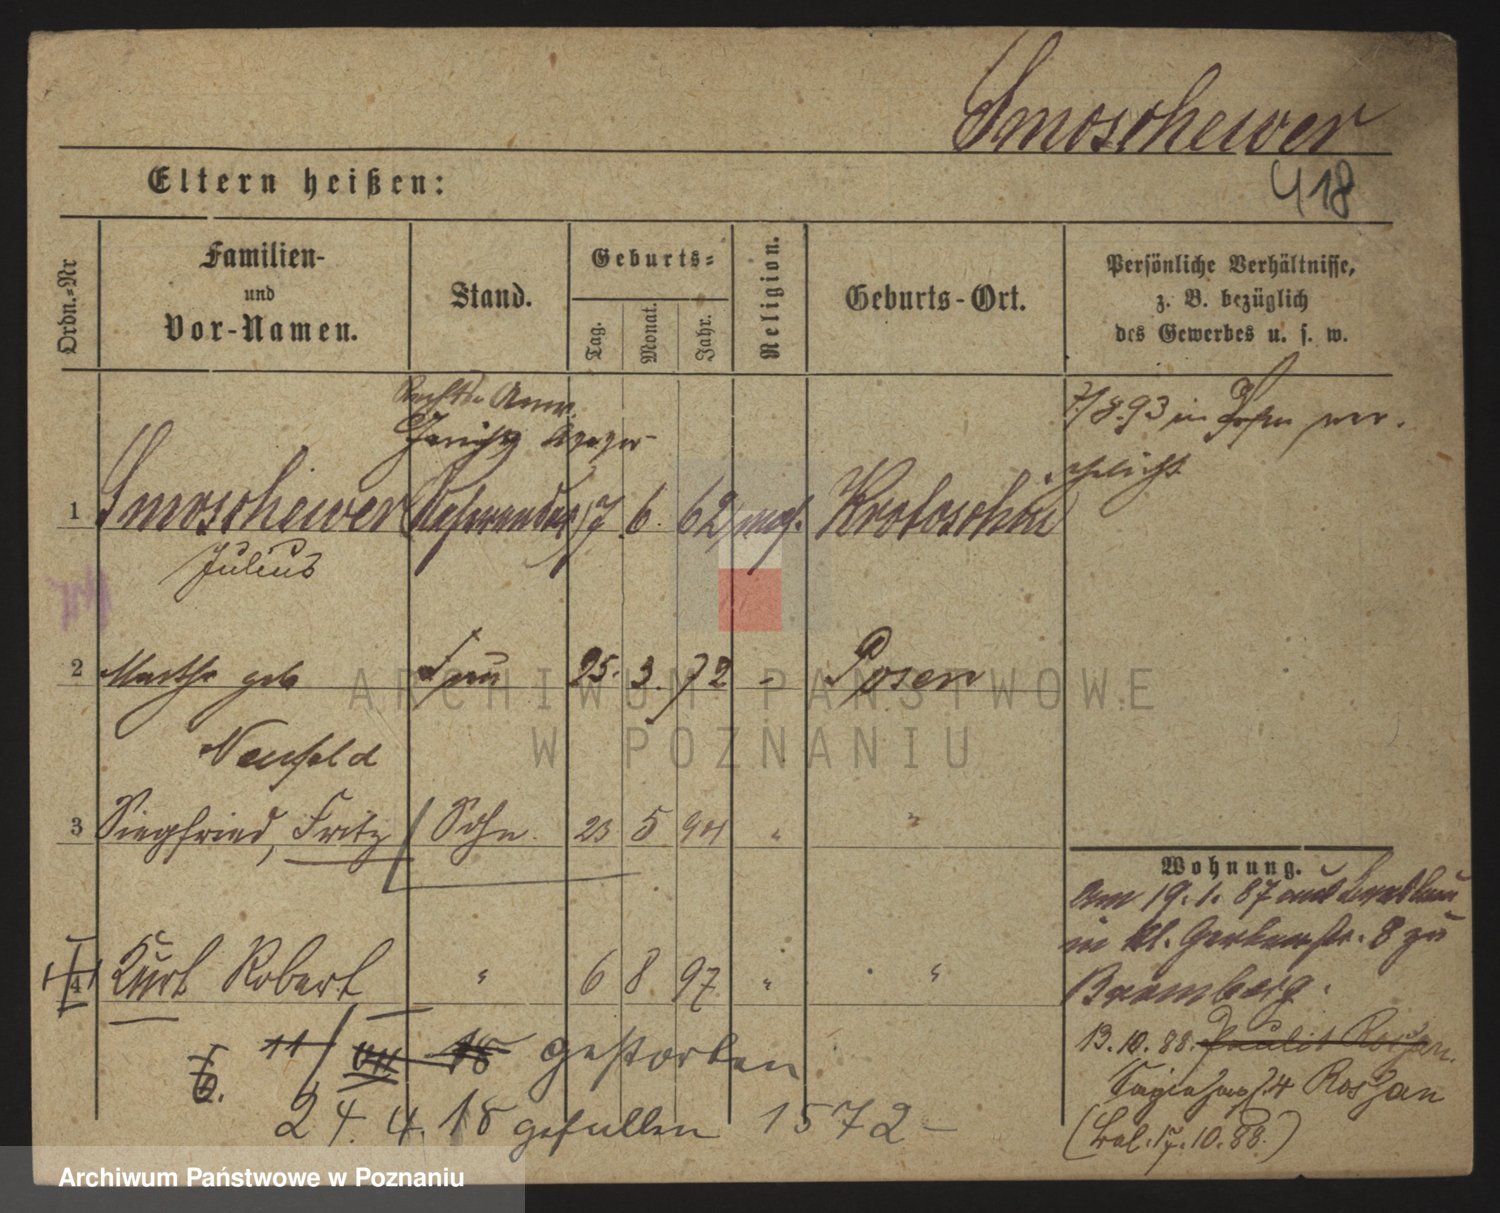 Smoschewer
418
Eltern heißen:
Ordn.-Nr
Familien-
und
Vor-Namen.
Stand.
Geburts-
Tag.
Monat.
Jahr.
Religion.
Geburts-Ort.
Persönliche Verhältnisse,
z. B. bezüglich
des Gewerbes u. s. w.
Rechts Anw.
7/8.93 in Posen ver-
ehelicht
1 Smoschewer Referendar 17 6. 62 mos. Krotoschin
Julius
2 Martha geb Frau 25. 3. 72 - Posen
Neufeld
3 Siegfried, Fritz Sohn 23 5 94 " "
Wohnung.
Am 19.1.87 aus
in Kl. Gerberstr. 8 zu
Bromberg.
4 Kurt Robert " 6 8 97 " "
11/VII 18 gestorben
24.4.18 gefallen 1572-
13.10.88.
4 Roschan
(Bal. 17.10.88.)
ARCHIWUM PAŃSTWOWE
W POZNANIU
Archiwum Państwowe w Poznaniu